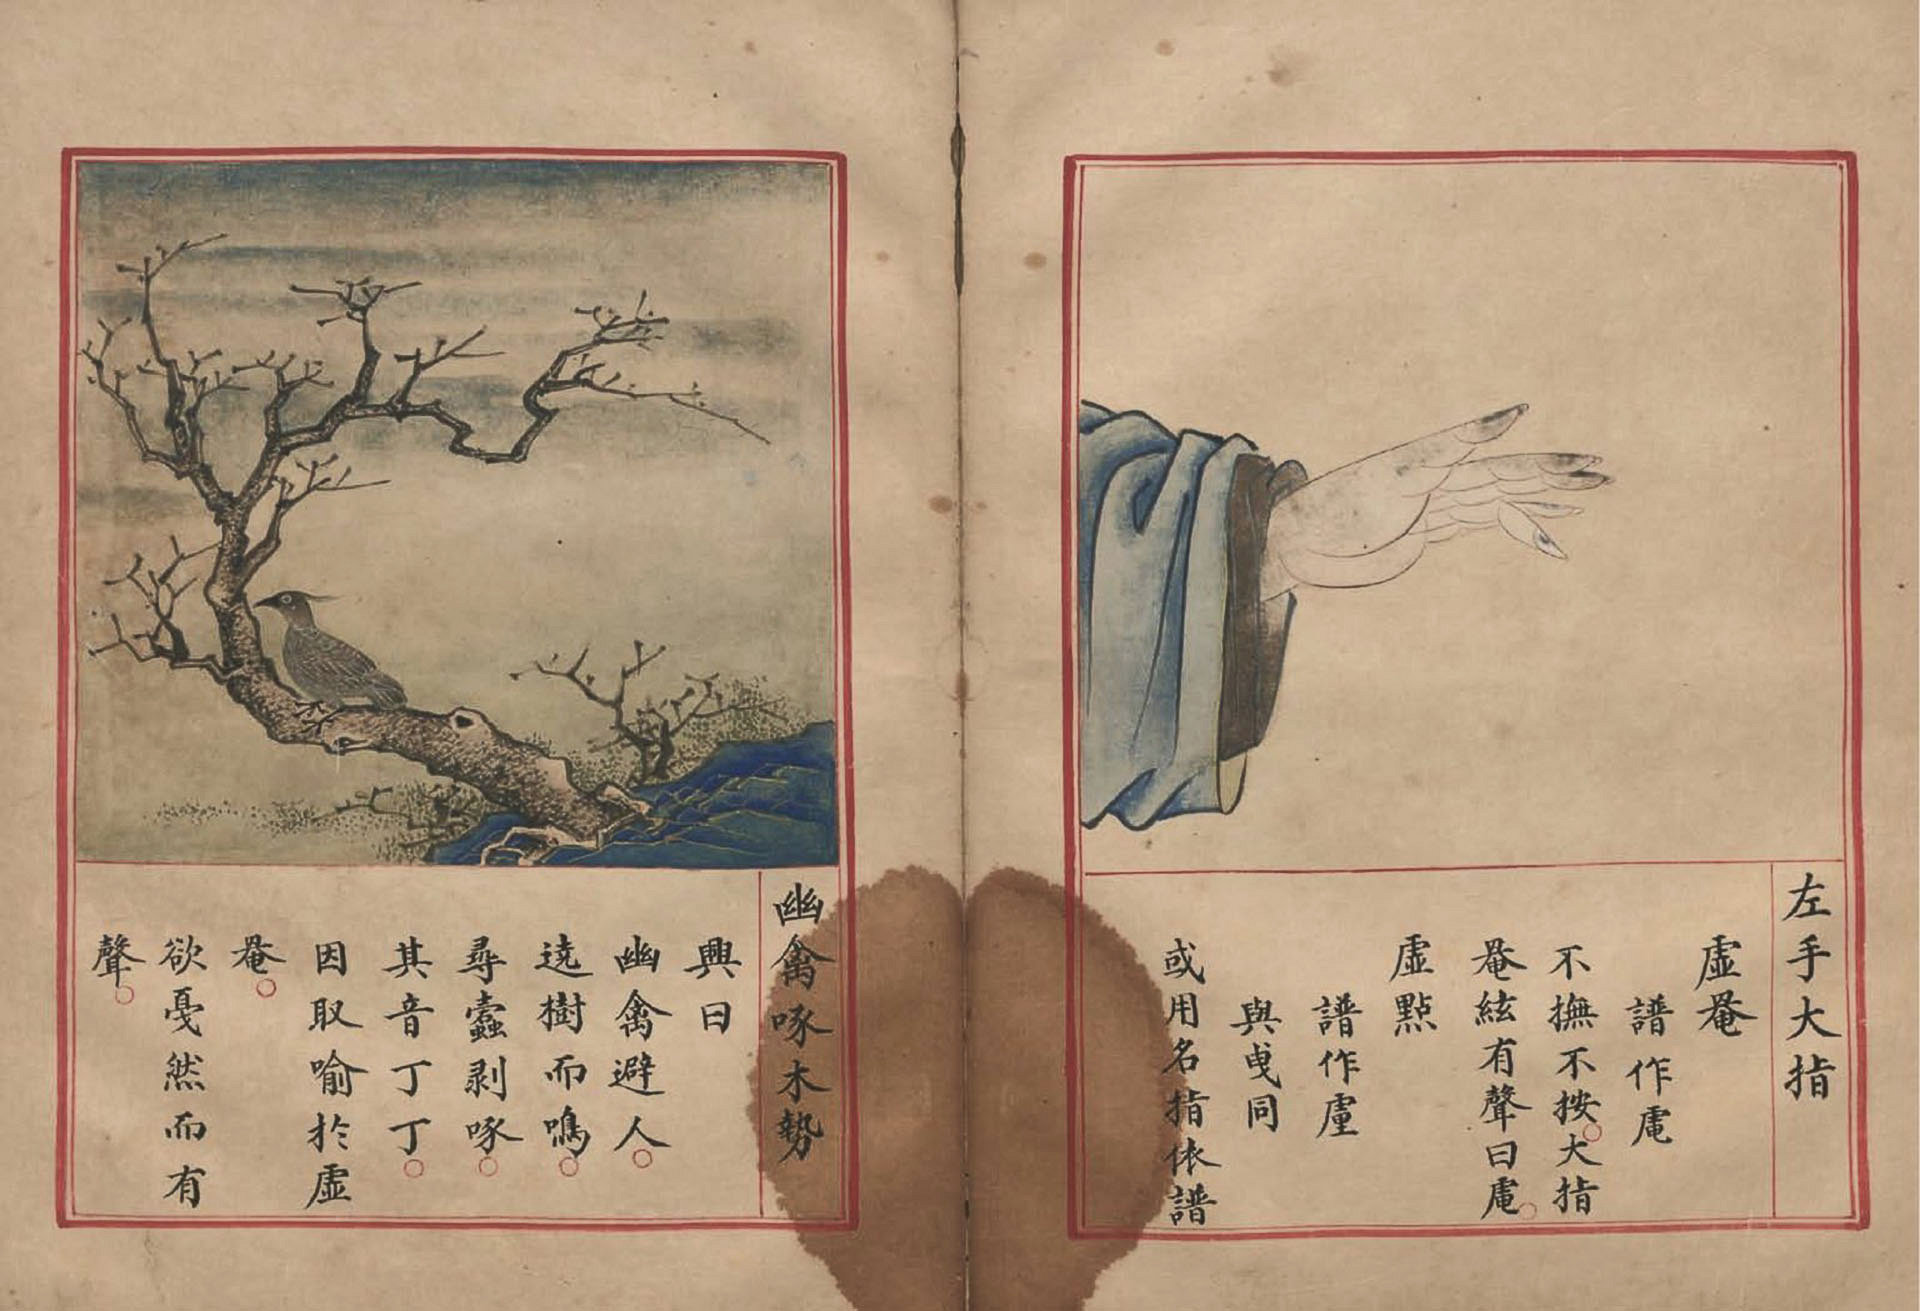 左手大指
虛罨
譜作
不撫不按。大指
罨絃有聲曰。
虛點
譜作
與曳同
或用名指依譜
幽禽啄木勢
興曰
幽禽避人。
遶樹而鳴。
尋蠹剥啄。
其音丁丁。
因取喻於虛
罨。
欲戞然而有
聲。